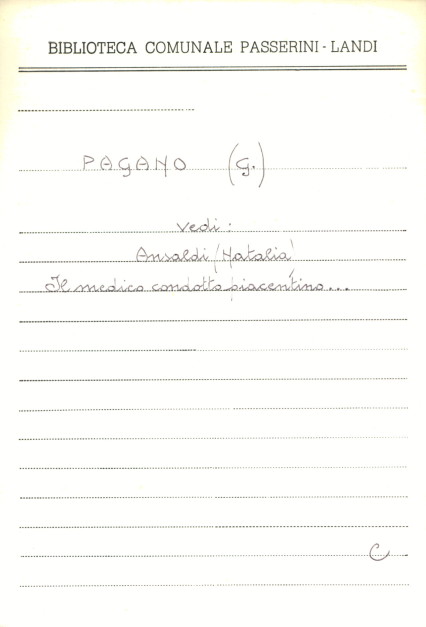 BIBLIOTECA COMUNALE PASSERINI - LANDI
PAGANO (G.)
vedi:
Ansaldi (Natalia)
Il medico condotto piacentino...
C